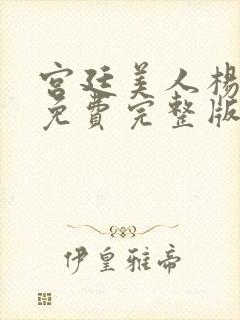 宫廷美人楊
免費完整版
伊皇雅帝